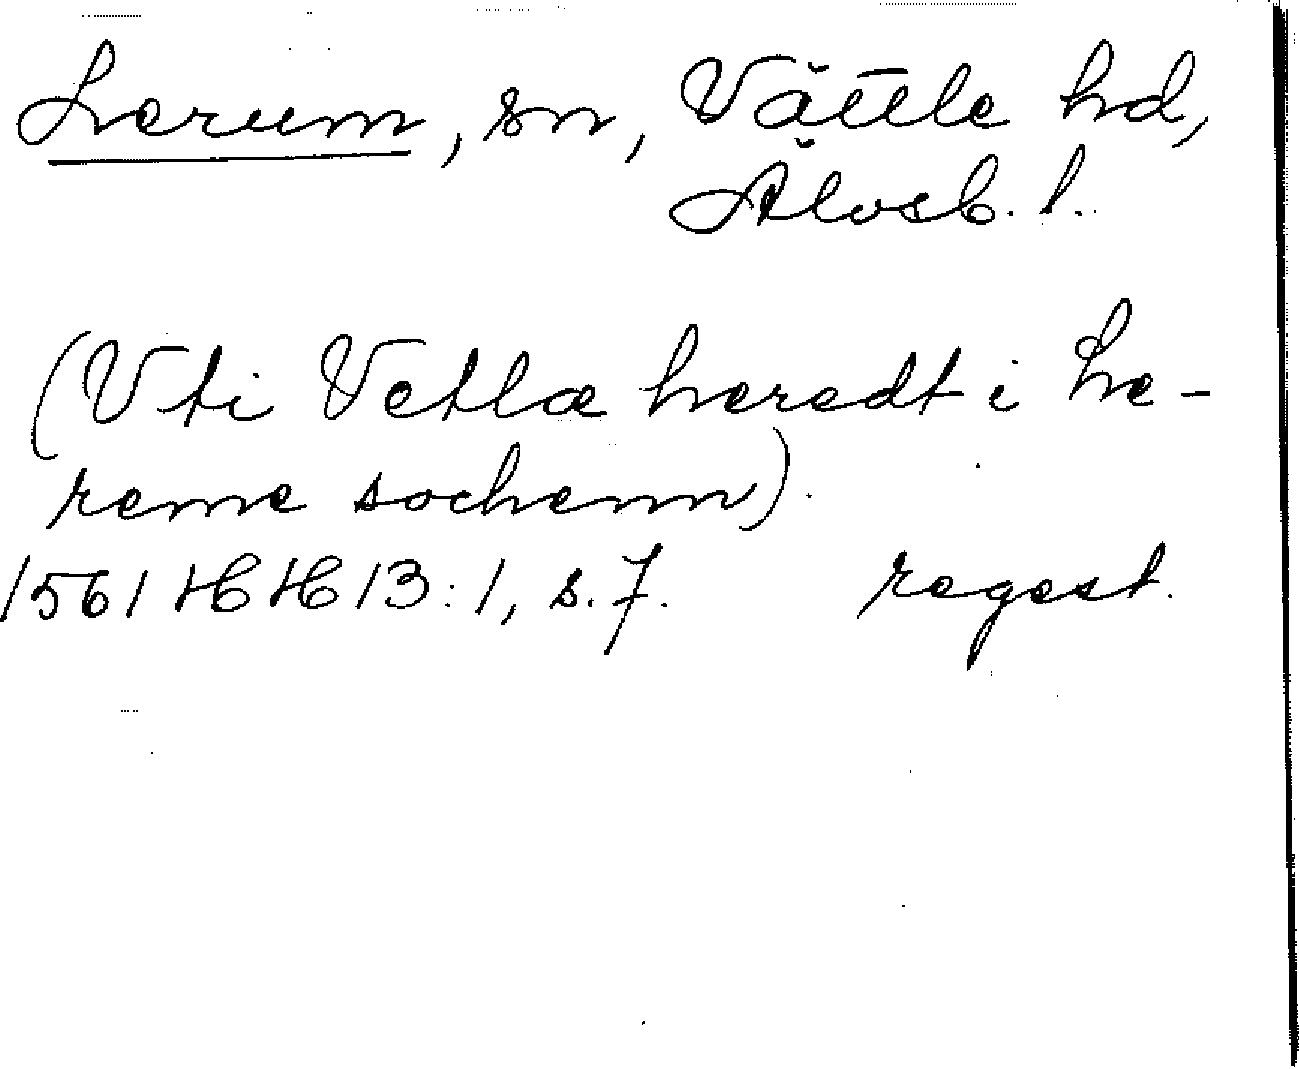 Lerum, sn, Vättle hd,
Älvsb. l.
(Vti Vetlæ heredt i Le-
reme sochenn).
1561 HH 13:1, s. 7. regest.